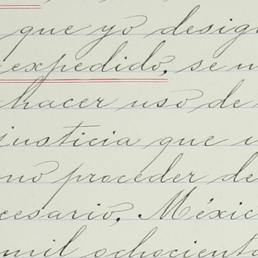 que yo desig
expedido, se
hacer uso de
justicia que
no proceder de
cesario, Méxic
mil ochocienta